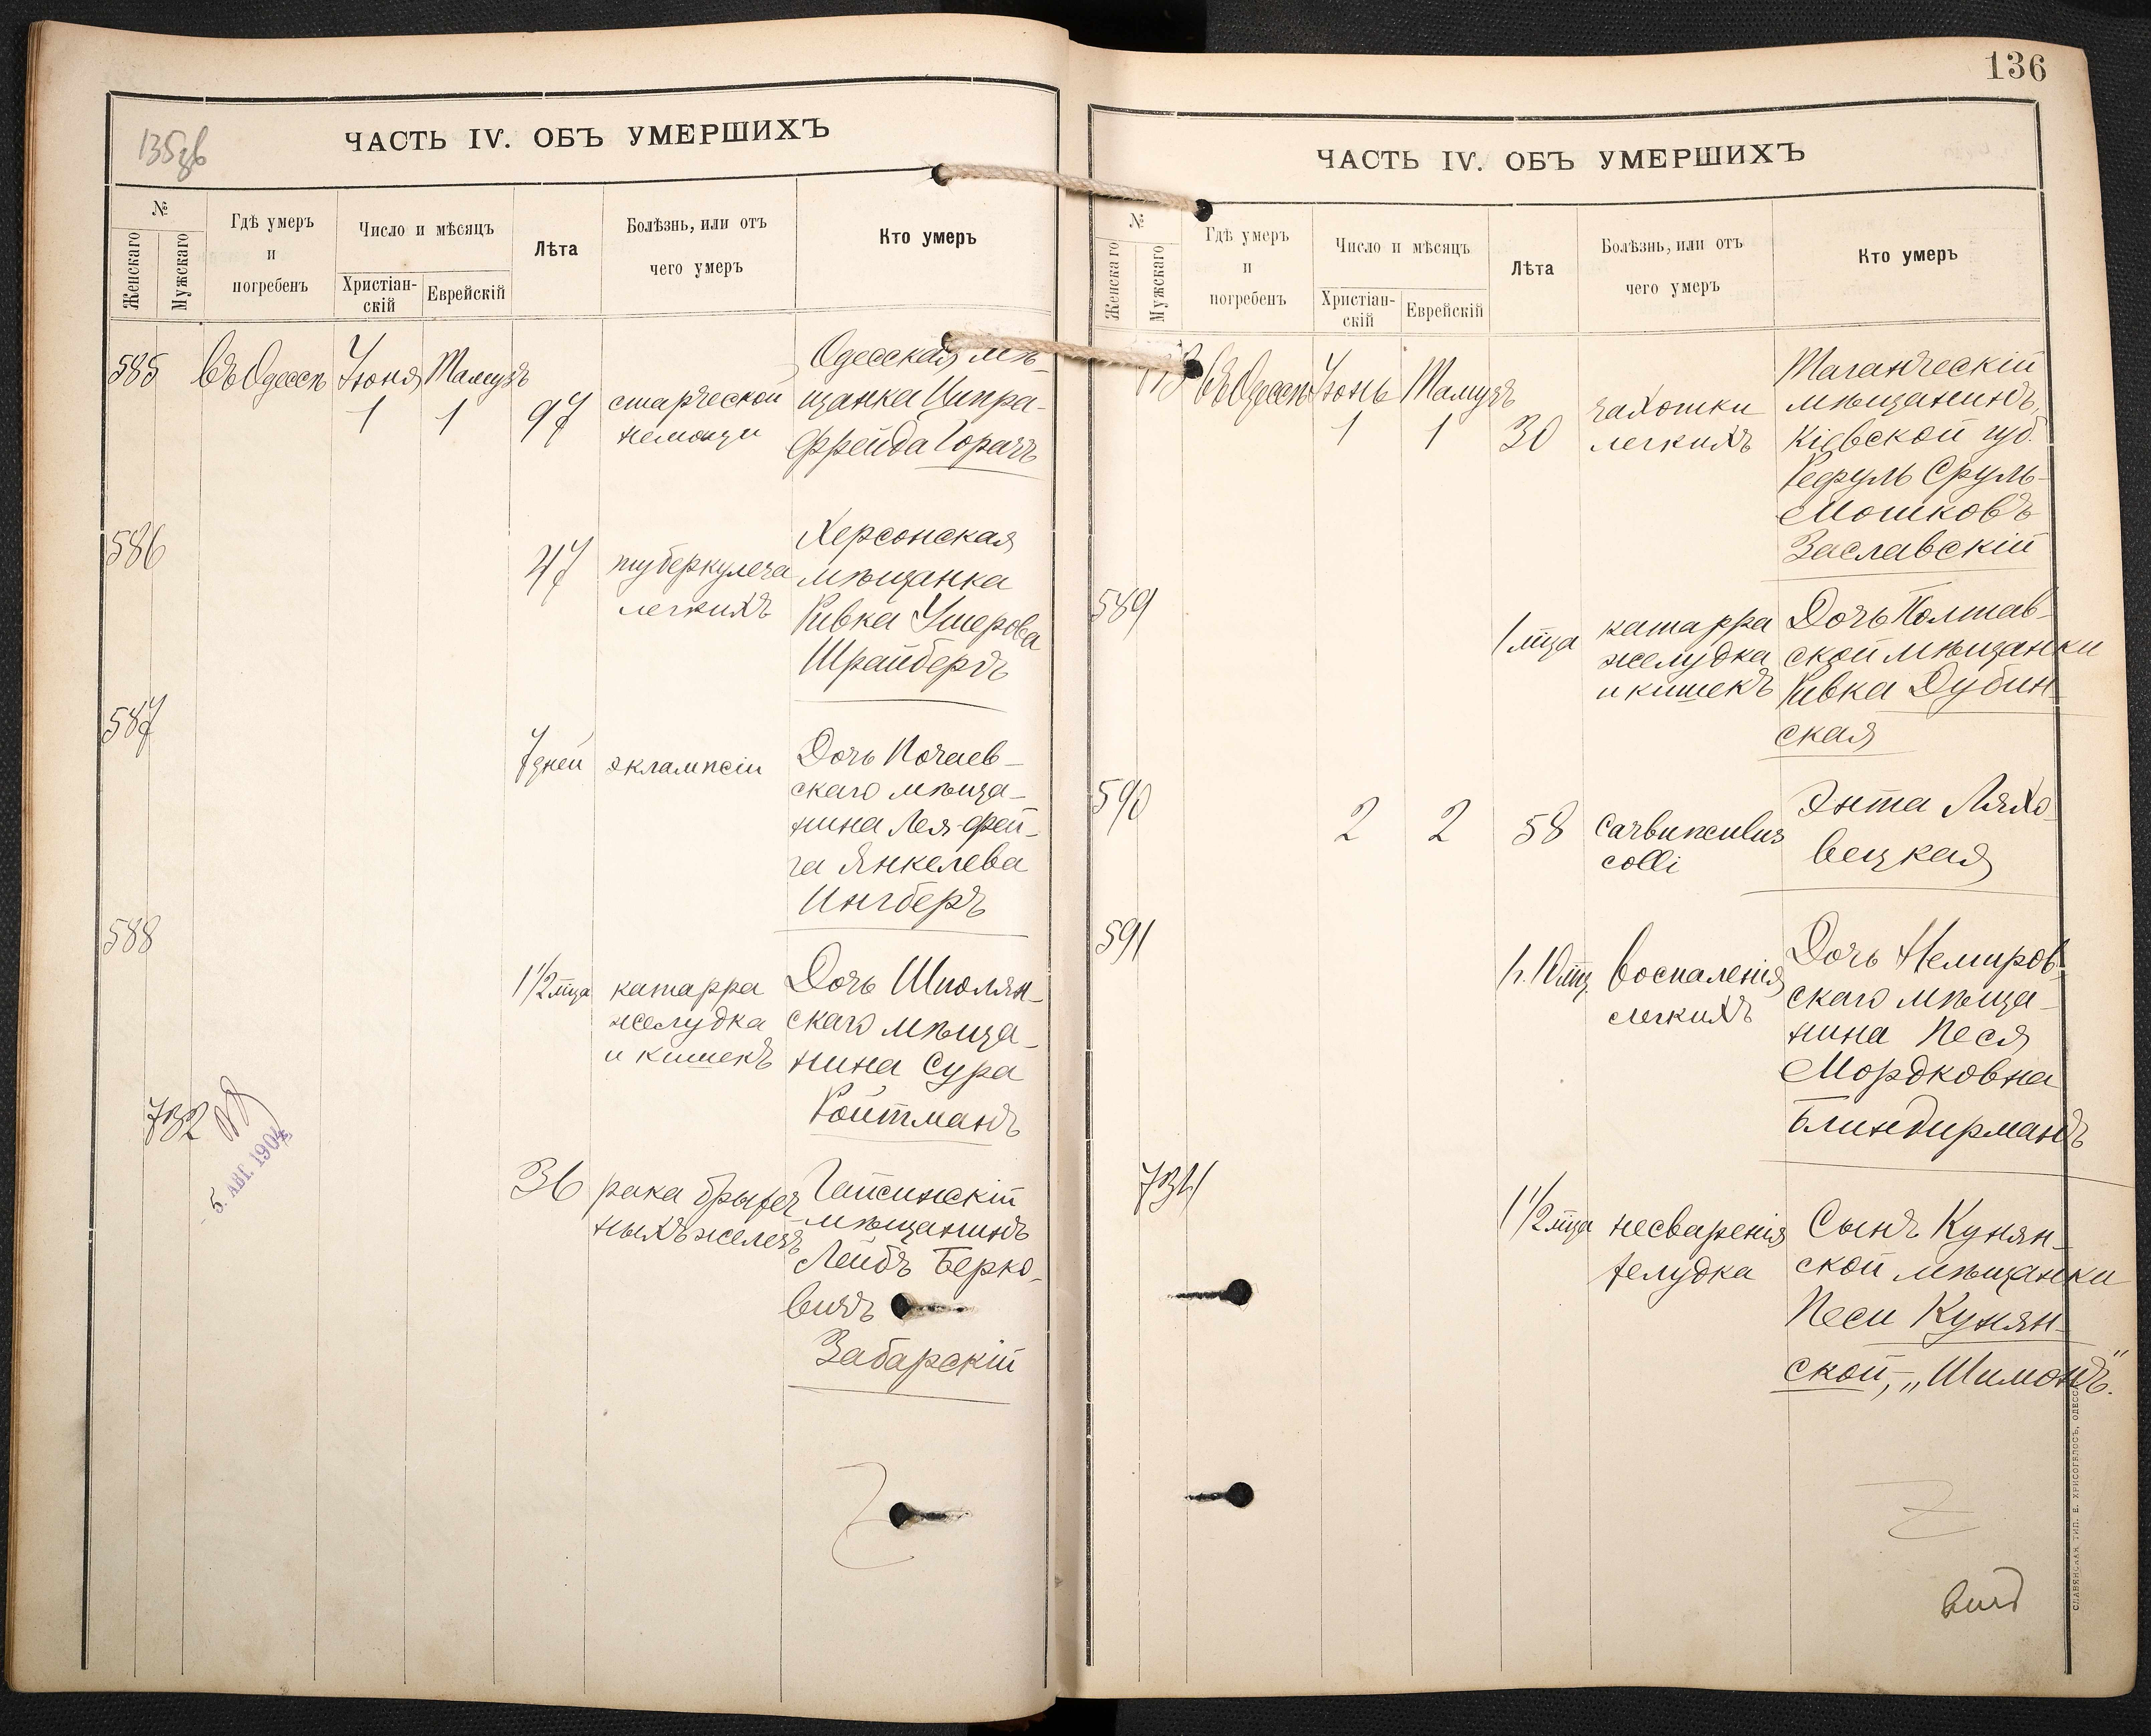 135зв
ЧАСТЬ IV. ОБЪ УМЕРШИХЪ
№
Женскаго
Мужскаго
Гдѣ умеръ
и
погребенъ
Число и мѣсяцъ
Христіан-
скій
Еврейскій
Лѣта
Болѣзнь, или отъ
чего умеръ
Кто умеръ
585
въ Одессѣ
Іюня
1
Тамузъ
1
97
старческой
немощи
Одесская мѣ-
щанка Ципра-
Фрейда Горачъ
586
47
туберкулеза
легкихъ
Херсонская
мѣщанка
Ривка Ушерова
Шрайберъ
587
7 дней
эклампсіи
Дочь Почаев-
скаго мѣща-
нина Лея-Фей-
га Янкелева
Ингберъ
588
1 1/2 мца
катарра
желудка
и кишекъ
Дочь Шполян-
скаго мѣща-
нина Сура
Ройтманъ
732
5. АВГ. 1904
36
рака брыжеч
ныхъ железъ
Гайсинскій
мѣщанинъ
Лейбъ Берко-
вичъ
Забарскій
136
ЧАСТЬ IV. ОБЪ УМЕРШИХЪ
№
Женскаго
Мужскаго
Гдѣ умеръ
и
погребенъ
Число и мѣсяцъ
Христіан-
скій
Еврейскій
Лѣта
Болѣзнь, или отъ
чего умеръ
Кто умеръ
733
въ Одессѣ
Іюнь
1
Тамузъ
1
30
чахотки
легкихъ
Таганческій
мѣщанинъ,
Кіевской губ.
Рефуль Сруль-
Мошковъ
Заславскій
589
1 мца
катарра
желудка
и кишекъ
Дочь Полтав-
ской мѣщанки
Ривка Дубин-
ская
590
2
2
58
Carbunculus
colli
Энта Ляхо-
вецкая
591
1 г. 10 мц.
воспаленія
легкихъ
Дочь Немиров-
скаго мѣща-
нина Песя
Мордковна
Блиндирманъ
734
1 1/2 мца
несваренія
желудка
Сынъ Кунян-
ской мѣщанки
Песи Кунян-
ской, „Шимонъ".
СЛАВЯНСКАЯ ТИП. Е. ХРИСОГЕЛОСЪ, ОДЕССА